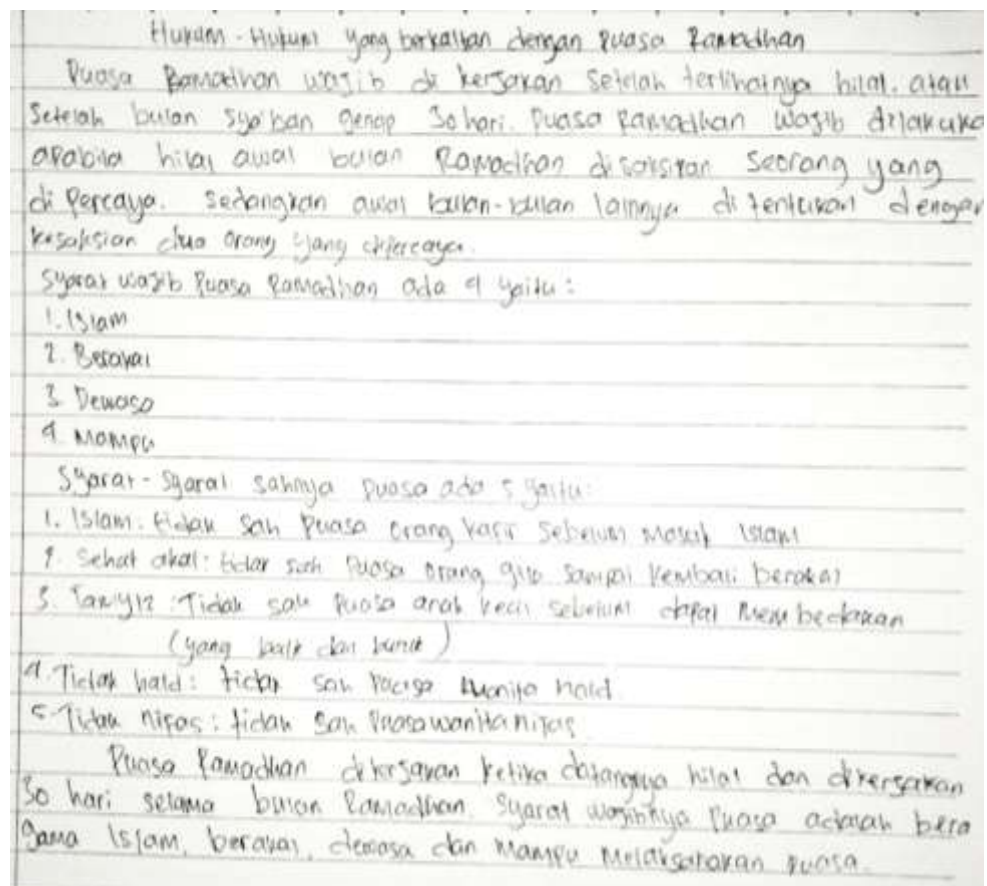 Hukum - Hukum yang berkaitan dengan Puasa Ramadhan
Puasa Ramadhan wajib di kerjakan Setelah terlihatnya hilal. atau
Setelah bulan Sya'ban genap 30 hari. Puasa Ramadhan wajib dilakuka
apabila hilal awal bulan Ramadhan disaksikan Seorang yang
di Percaya. Sedangkan awal bulan-bulan lainnya di tentukan dengan
kesaksian dua orang yang dipercaya.
Syarat wajib Puasa Ramadhan ada 4 yaitu :
1. Islam
2. Berakal
3. Dewasa
4. Mampu
Syarat - Syarat sahnya Puasa ada 5 yaitu:
1. Islam: tidak sah Puasa orang kafir Sebelum Masuk Islam
2. Sehat akal: tidak sah Puasa orang gila Sampai kembali berakal
3. Tamyiz : Tidak sah Puasa anak kecil sebelum dapat Membedakan
(yang baik dan buruk)
4. Tidak haid: tidak sah Puasa Wanita haid
5. Tidak nifas: tidak sah Puasa wanita nifas
Puasa Ramadhan dikerjakan ketika datangnya hilal dan dikerjakan
30 hari selama bulan Ramadhan. Syarat wajibnya Puasa adalah bera
gama Islam, berakal, dewasa dan mampu Melaksanakan puasa.